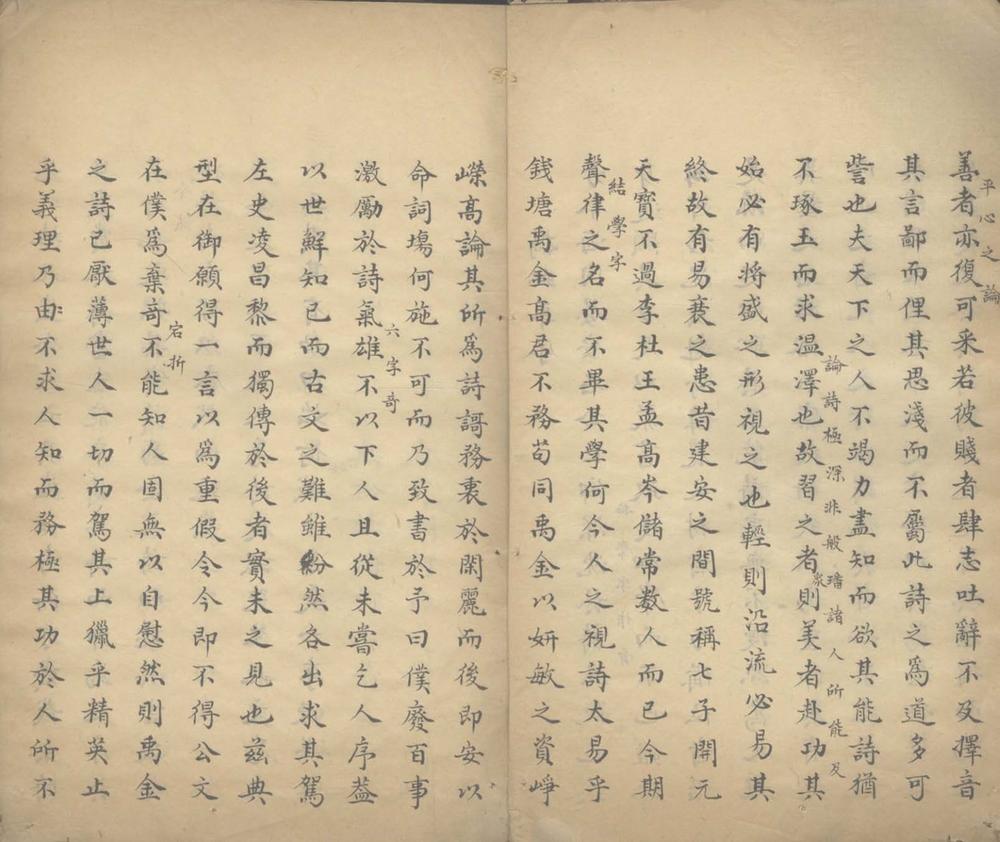 善者亦復可采若彼賤者肆志吐辭不及擇音
平心之論
其言鄙而俚其思淺而不屬此詩之為道多可
訾也夫天下之人不竭力盡知而欲其能詩猶
論詩極深非般璠諸人所能及
不琢玉而求温澤也故習之者衆則美者赴功其
始必有将盛之形視之也輕則沿流必易其
終故有易衰之患昔建安之間號稱七子開元
天寳不過李杜王孟高岑儲常数人而已今期
結學字
聲律之名而不畢其學何今人之視詩太易乎
錢塘禹金高君不務苟同禹金以妍敏之資崢
嶸高論其所為詩謌務裏於閑麗而後即安以
命詞塲何施不可而乃致書於予曰僕廢百事
六字奇
激勵於詩氣雄不以下人且從未嘗乞人序葢
以世鮮知已而古文之難雖紛然各出求其駕
左史凌昌黎而獨傳於後者實未之見也兹典
型在御願得一言以為重假令今即不得公文
宕折
在僕為棄竒不能知人固無以自慰然則禹金
之詩已厭薄世人一切而駕其上獵乎精英止
乎義理乃由不求人知而務極其功於人所不